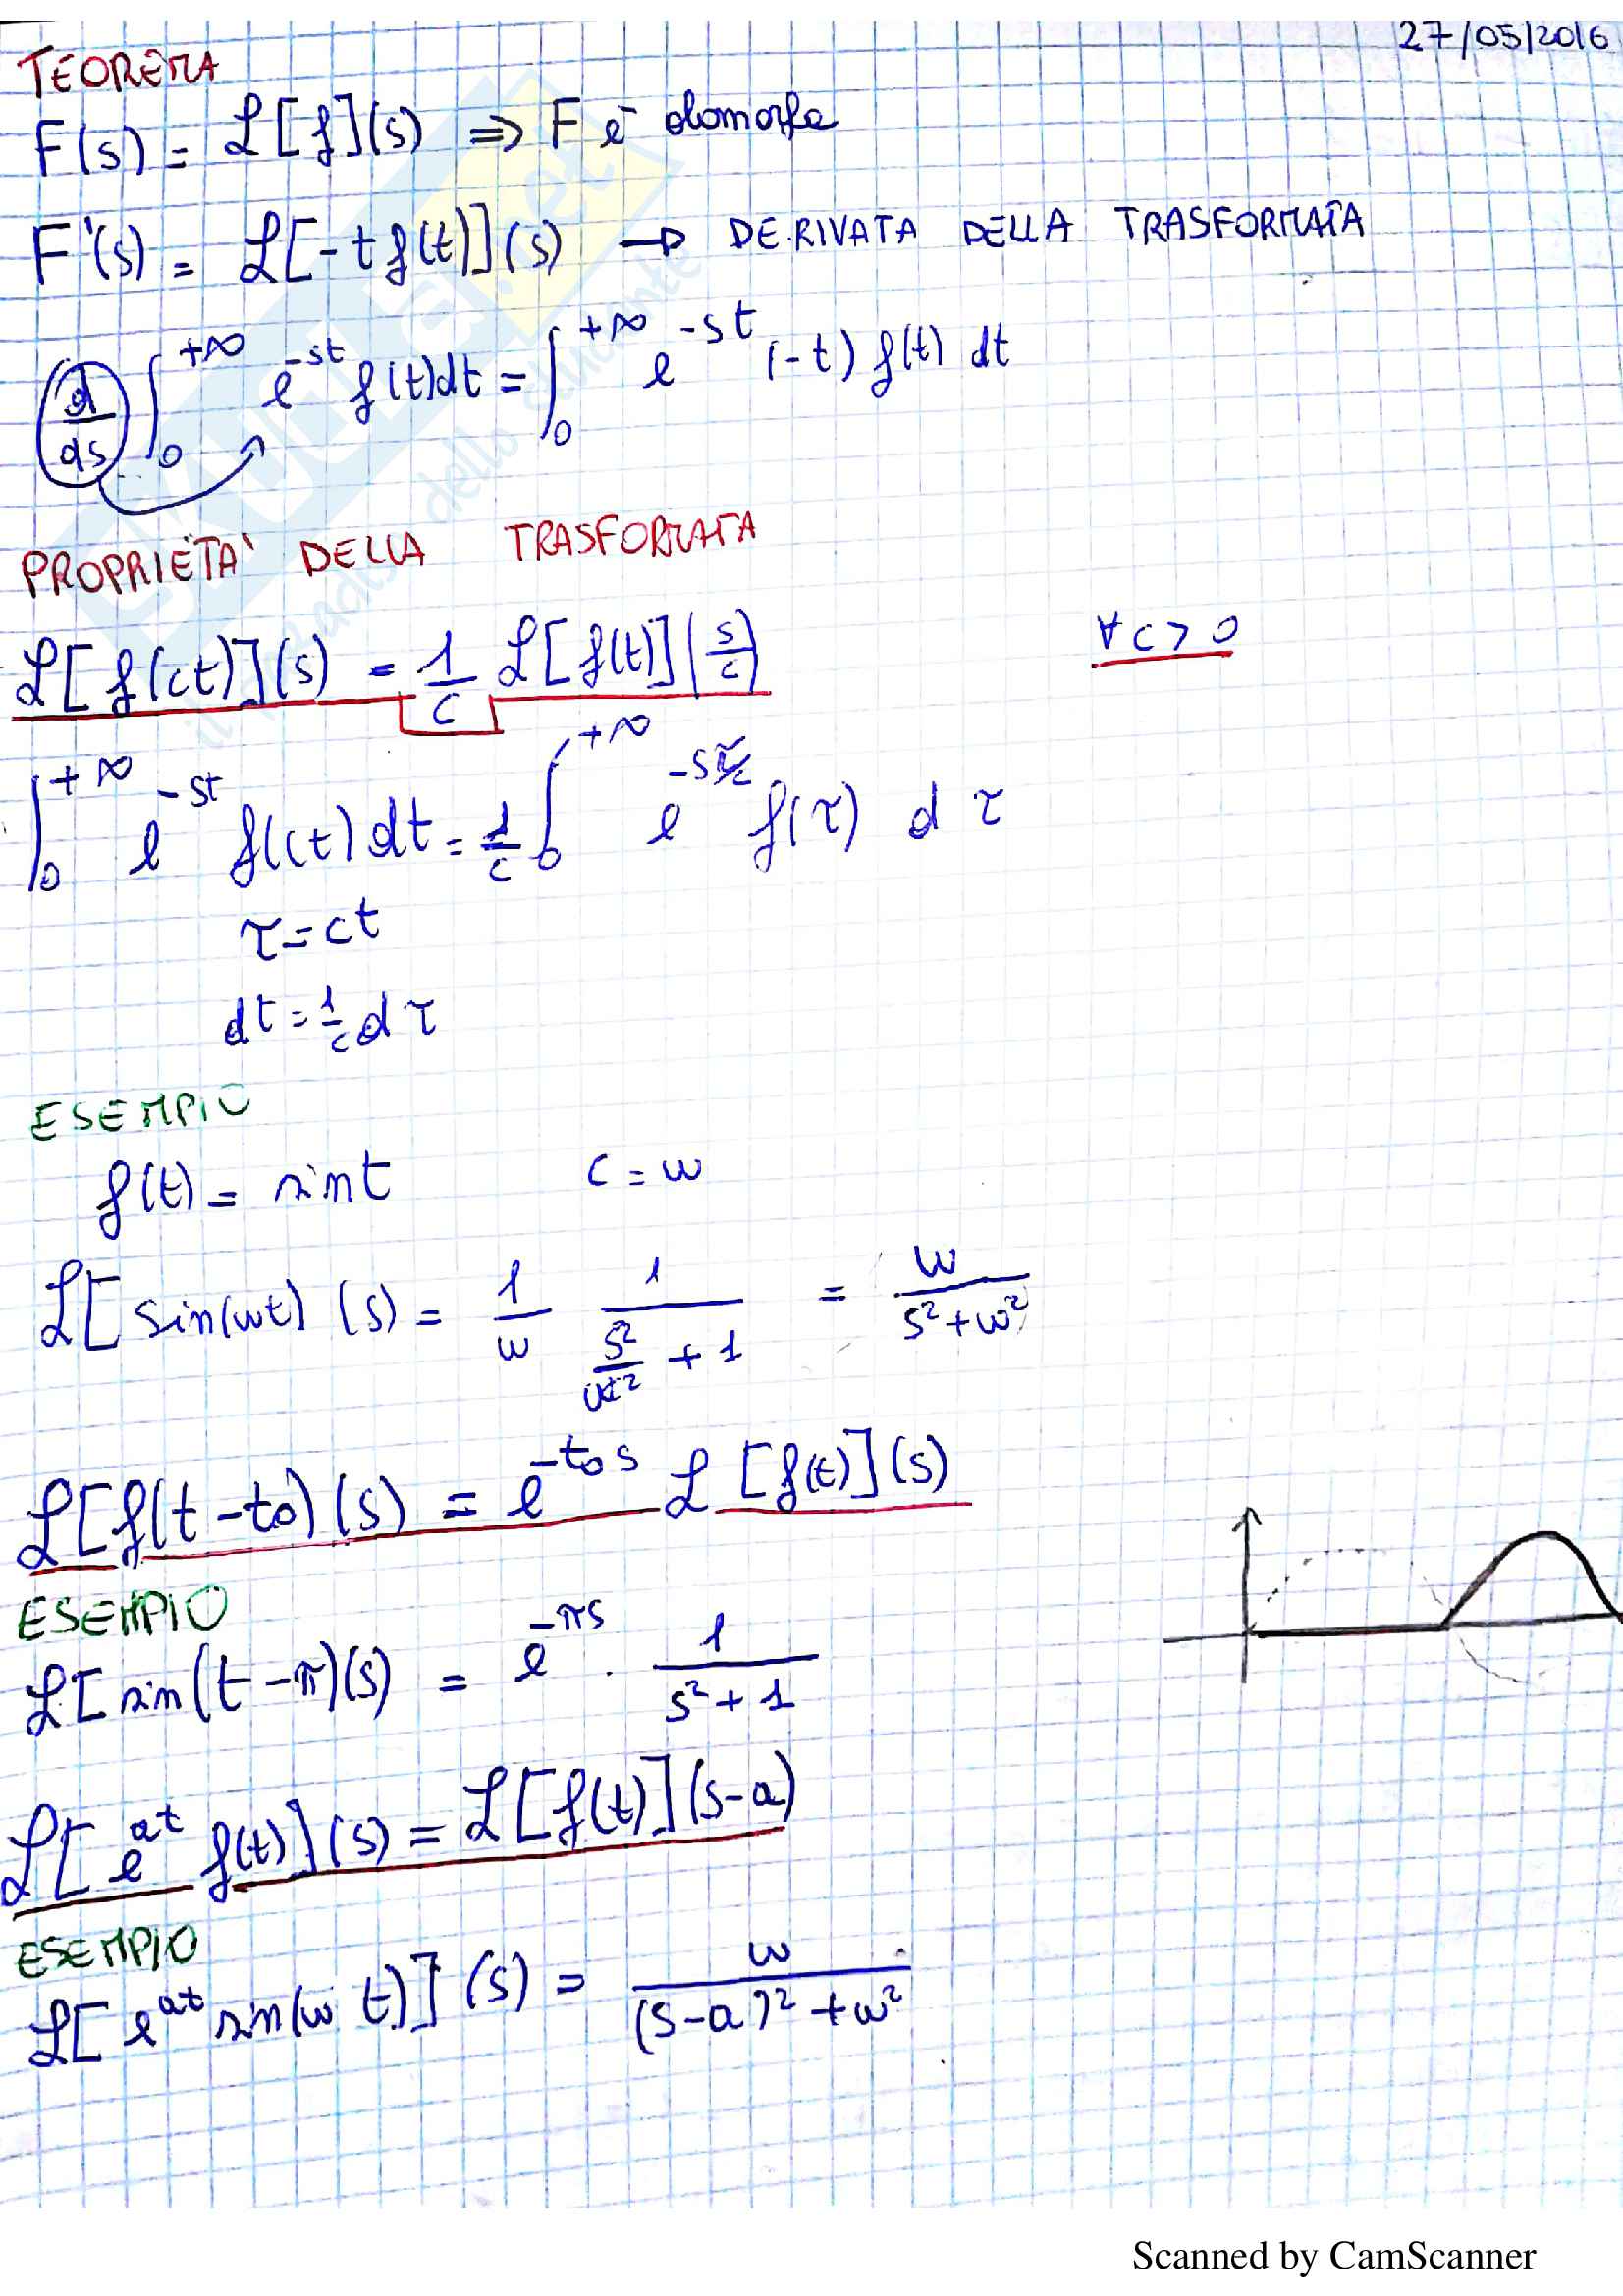 27/05/2016
TEOREMA
F(s) = ℒ[f](s) ⇒ F è olomorfa
F'(s) = ℒ[-t f(t)](s) → DERIVATA DELLA TRASFORMATA
d/ds ∫₀^{+∞} e^{-st} f(t)dt = ∫₀^{+∞} e^{-st} (-t) f(t) dt
PROPRIETA' DELLA TRASFORMATA
ℒ[f(ct)](s) = 1/c ℒ[f(t)](s/c) ∀ c > 0
∫₀^{+∞} e^{-st} f(ct) dt = 1/c ∫₀^{+∞} e^{-sτ/c} f(τ) dτ
τ = ct
dt = 1/c dτ
ESEMPIO
f(t) = sin t c = w
ℒ[sin(wt) (s) = 1/w 1/(s²/w² + 1) = w/(s²+w²)
ℒ[f(t-t₀) (s) = e^{-t₀s} ℒ [f(t)](s)
ESEMPIO
ℒ[sin(t-π)(s) = e^{-πs} · 1/(s²+1)
ℒ[e^{at} f(t)](s) = ℒ[f(t)](s-a)
ESEMPIO
ℒ[e^{at} sin(w t)](s) = w/((s-a)²+w²)
Scanned by CamScanner